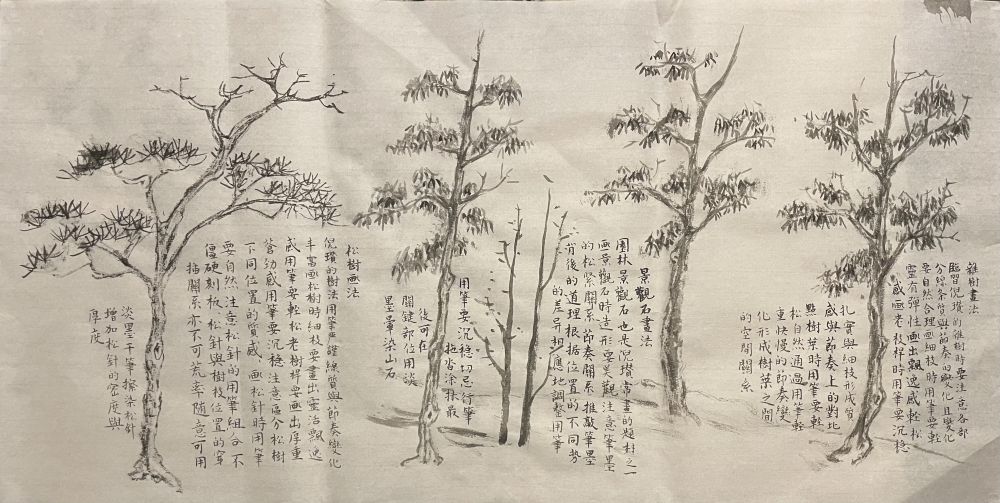 雜樹畫法
臨習倪瓚的雜樹時要注意各部
分線條質與節奏的變化且變化
要自然合理画細枝時用筆要輕
靈有彈性画出飄逸感輕松
感画老枝桿時用筆要沉穩
扎實與細枝形成質
感與節奏上的對比
點樹葉時用筆要輕
松自然通過用筆輕
重快慢的節奏變
化形成樹葉之間
的空間關系
景觀石畫法
園林景觀石也是倪瓚常畫的題材之一
画景觀石時造形要美觀注意筆墨
的松緊關系節奏關系推敲筆墨
背後的道理根据位置的不同势
的差异相應地調整用筆
用筆要沉穩切忌行筆
拖沓涂抹最
後可在
關鍵部位用淡
墨罩染山石
松樹画法
倪瓚的樹法用筆謹線質與節奏變化
丰富画松樹時細枝要畫出靈活飄逸
感用筆要輕松老樹桿要画出厚重
蒼劲感用筆要沉穩注意區分松樹
不同位置的質感画松針時用筆
要自然注意松針的用筆組合不
僵硬刻板松針與樹枝位置的穿
插關系亦不可輕率隨意可用
淡墨干筆擦染松針
增加松針的密度與
厚度